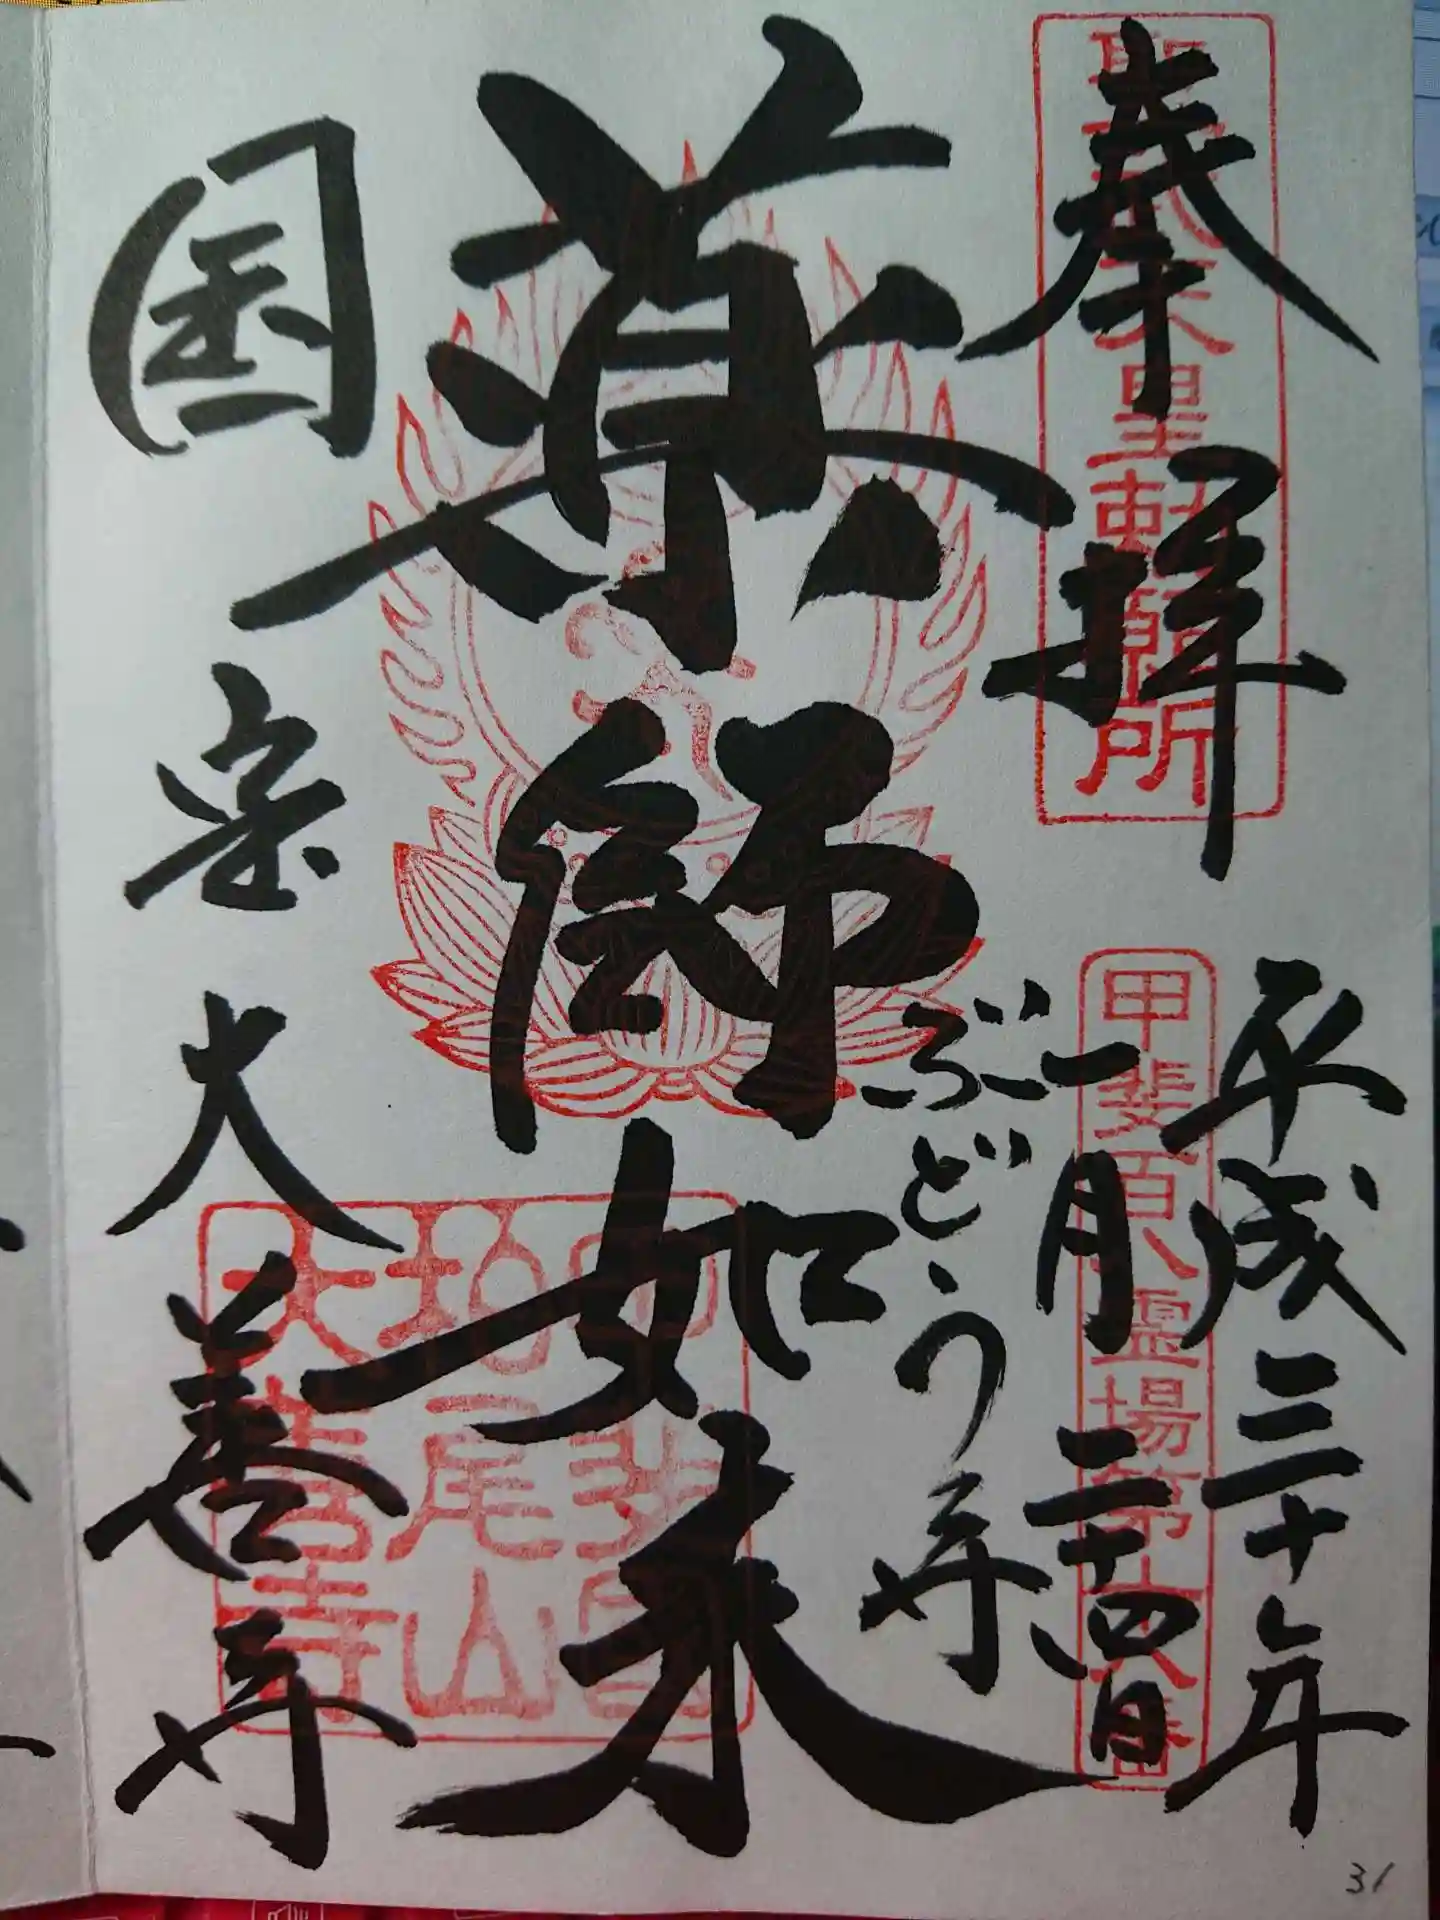 奉拝
平成三十年
二月二十四日
ぶどう寺
薬師如来
国宝
大善寺
甲斐百八霊場第
勅願所
柏尾山
大善寺
31